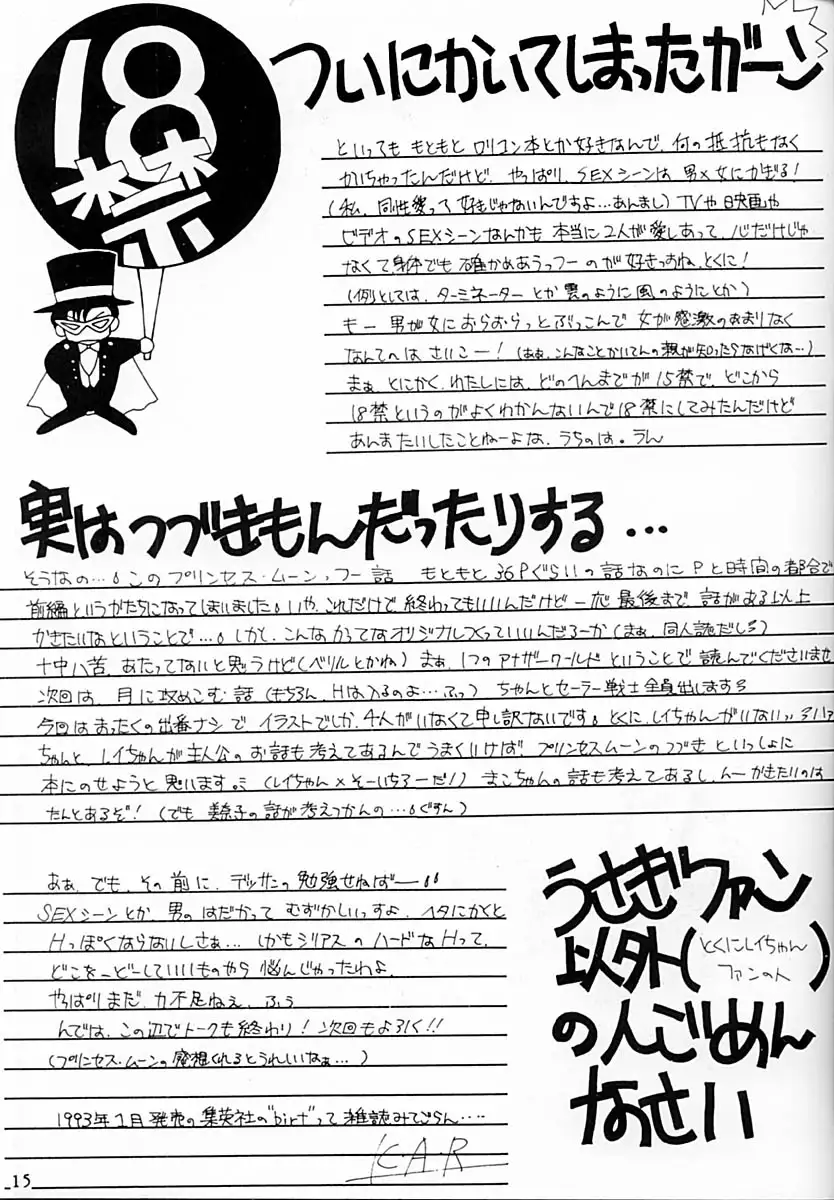 18
禁
ついにかいてしまったガーン
といっても もともと ロリコン本とか好きなんで、何の抵抗もなく
かいちゃったんだけど、やっぱり、SEXシーンは 男×女にかぎる!
(私、同性愛って好きじゃないんですよ…あんまし) TVや映画や
ビデオのSEXシーンなんかも 本当に2人が愛しあって、心だけじゃ
なくて身体でも 確かめあうっつーのが 好きっすね、とくに!
(例としては、ターミネーターとか 雲のように風のようにとか)
もー 男が女におらおらっとぶっこんで 女が感激のあまりなく
なんてのは さいこー! (ああ、こんなことかいてんの親が知ったらなげくな…)
まぁ、とにかく、わたしには、どのへんまでが 15禁で、どこから
18禁というのがよくわかんないんで18禁にしてみたんだけど
あんまたいしたことねーよな、うちのは。うん
実はつづきもんだったりする…
そうなの…。このプリンセス・ムーンっつー話 もともと36Pぐらいの話なのにPと時間の都合で
前編というかたちになってしまいました。いや、これだけで終わってもいいんだけど一応最後まで話がある以上
かきたいなということで…。しかし、こんなかってなオリジナルつくっていいんだろーか(まぁ、同人誌だしろ)
十中八苦、あたってないと思うけど(ベリルとかね)まぁ、1つのアナザーワールドということで読んでくださいませ
次回は、月に攻めこむ話(もちろん、Hは入るのよ…ふっ) ちゃんとセーラー戦士全員出しますろ
今回はまったくの出番ナシで イラストでしか、4人がいなくて申し訳ないです。とくに、レイちゃんがいない
ちゃんと、レイちゃんが主人公のお話も考えてあるんでうまくいけば プリンセスムーンのつづきといっしょに
本にのせようと思います。(レイちゃん×そーいちろーだ!) まこちゃんの話も考えてあるし、んーかきたいのは
たんとあるぞ! (でも 美奈子の話が考えつかんの…。ぐすん)
ああ、でも、その前に、デッサンの勉強せねばー
SEXシーンとか、男のはだかって むずかしいっすよ、ヘタにかくと
Hっぽくならないしさぁ… しかもシリアスのハードなHって、
どこを一どーしていいものやら 悩んじゃったわよ
やっぱりまだ、力不足ねぇ、ふぅ
んでは、この辺でトークも終わり! 次回もよろしく!!
(プリンセス・ムーンの感想くれるとうれしいなぁ…)
1993年1月発売の集英社の"birt"って雑誌みてごらん…
K・A・R
うさぎファン
以外(とくにレイちゃんファンの人)
の人ごめん
なさい
15